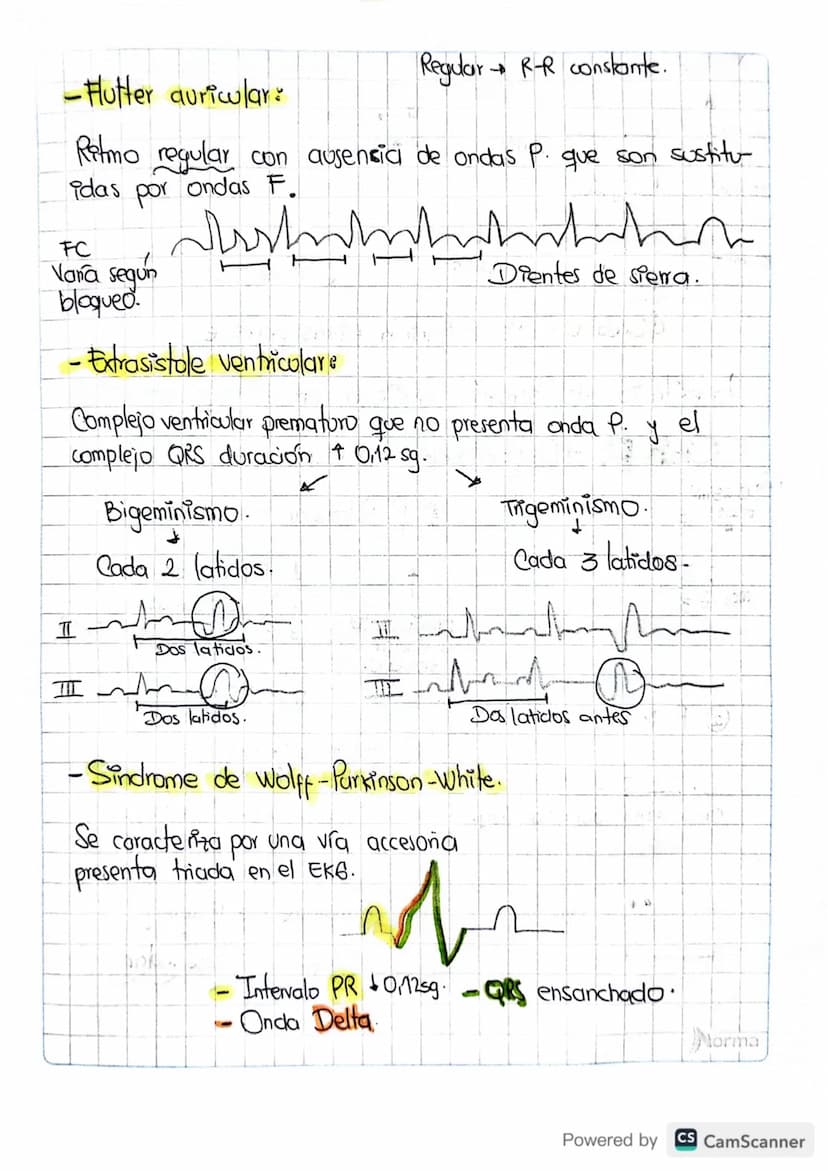 Regular → R-R constante.
- Flutter auricular:
Ritmo regular con ausencia de ondas P. que son sustitu-
idas por ondas F.
FC
Varía según
bloqueo.
Dientes de sierra.
- Extrasistole ventricular:
Complejo ventricular prematuro que no presenta onda P. y el
complejo QRS duración ↑ 0,12 sg.
Bigeminismo.
Trigeminismo.
Cada 2 latidos.
Cada 3 latidos.
II
II
Dos latidos.
III
III
Dos latidos.
Dos latidos antes
- Síndrome de Wolff-Parkinson-White.
Se caracteriza por una vía accesoria
presenta triada en el EKG.
- Intervalo PR ↓ 0,12sg. - QRS ensanchado.
- Onda Delta.
Norma
Powered by CS CamScanner